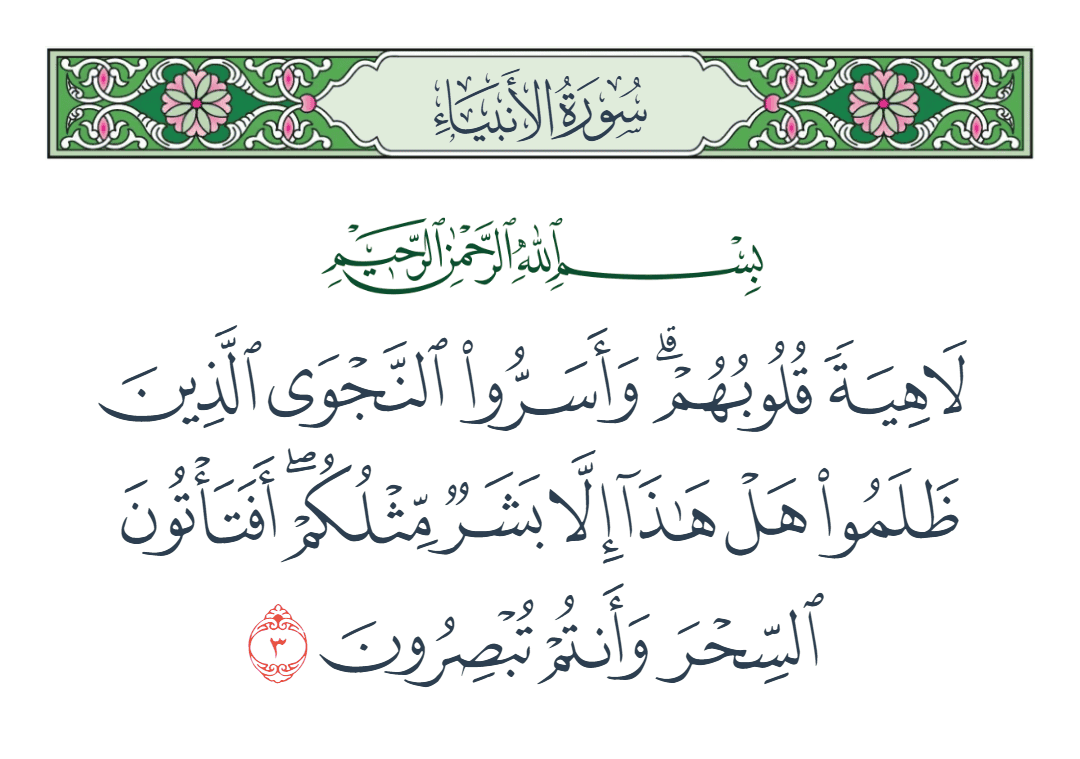 سُورَةُ الأَنبِيَاءِ
بِسْمِ ٱللَّهِ ٱلرَّحْمَٰنِ ٱلرَّحِيمِ
لَاهِيَةً قُلُوبُهُمْ ۗ وَأَسَرُّوا۟ ٱلنَّجْوَى ٱلَّذِينَ
ظَلَمُوا۟ هَلْ هَٰذَآ إِلَّا بَشَرٌ مِّثْلُكُمْ ۖ أَفَتَأْتُونَ
ٱلسِّحْرَ وَأَنتُمْ تُبْصِرُونَ ٣